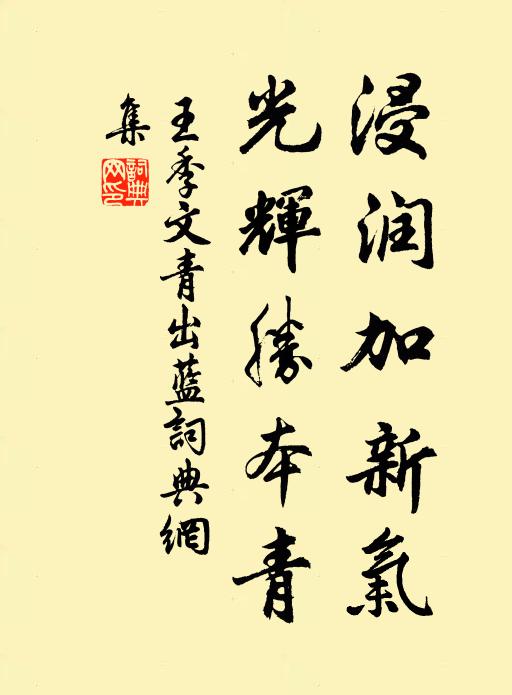 浸润加新氣
光輝勝本青
王季文青出藍詞典網
集
詞典網印